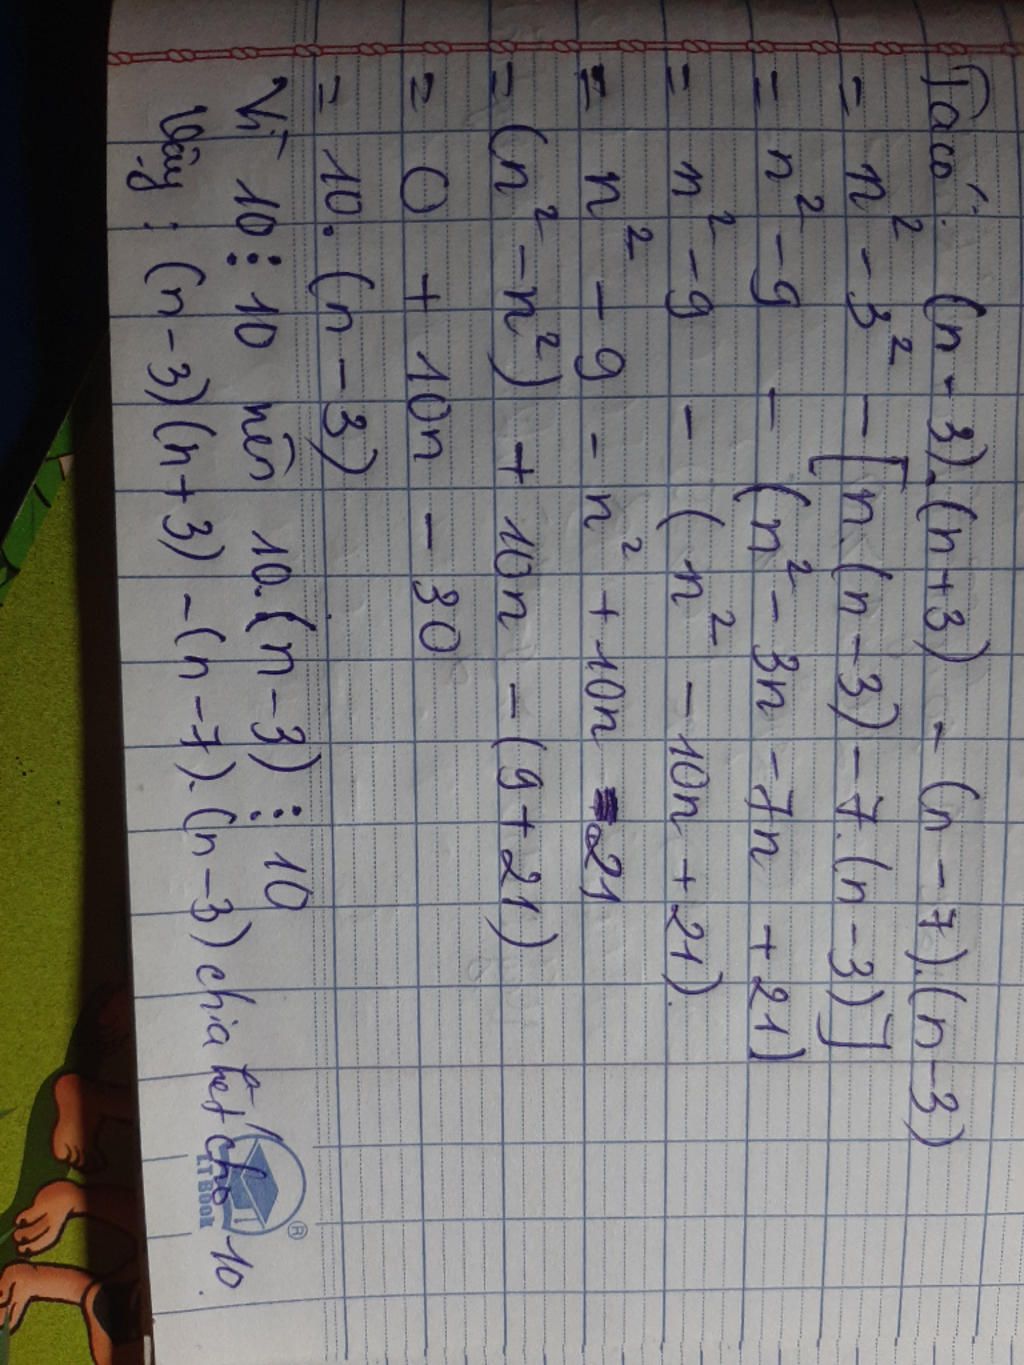 Ta có: (n - 3).(n+3) - (n - 7).(n - 3)
= n² - 3² - [n.(n - 3) - 7.(n - 3)]
= n² - 9 - (n² - 3n - 7n + 21)
= n² - 9 - (n² - 10n + 21).
= n² - 9 - n² + 10n - 21
= (n² - n²) + 10n - (9 + 21)
= 0 + 10n - 30
= 10.(n - 3)
Vì 10 ⋮ 10 nên 10.(n - 3) ⋮ 10
Vậy : (n - 3)(n + 3) - (n - 7).(n - 3) chia hết cho 10.
LTBOOK ®